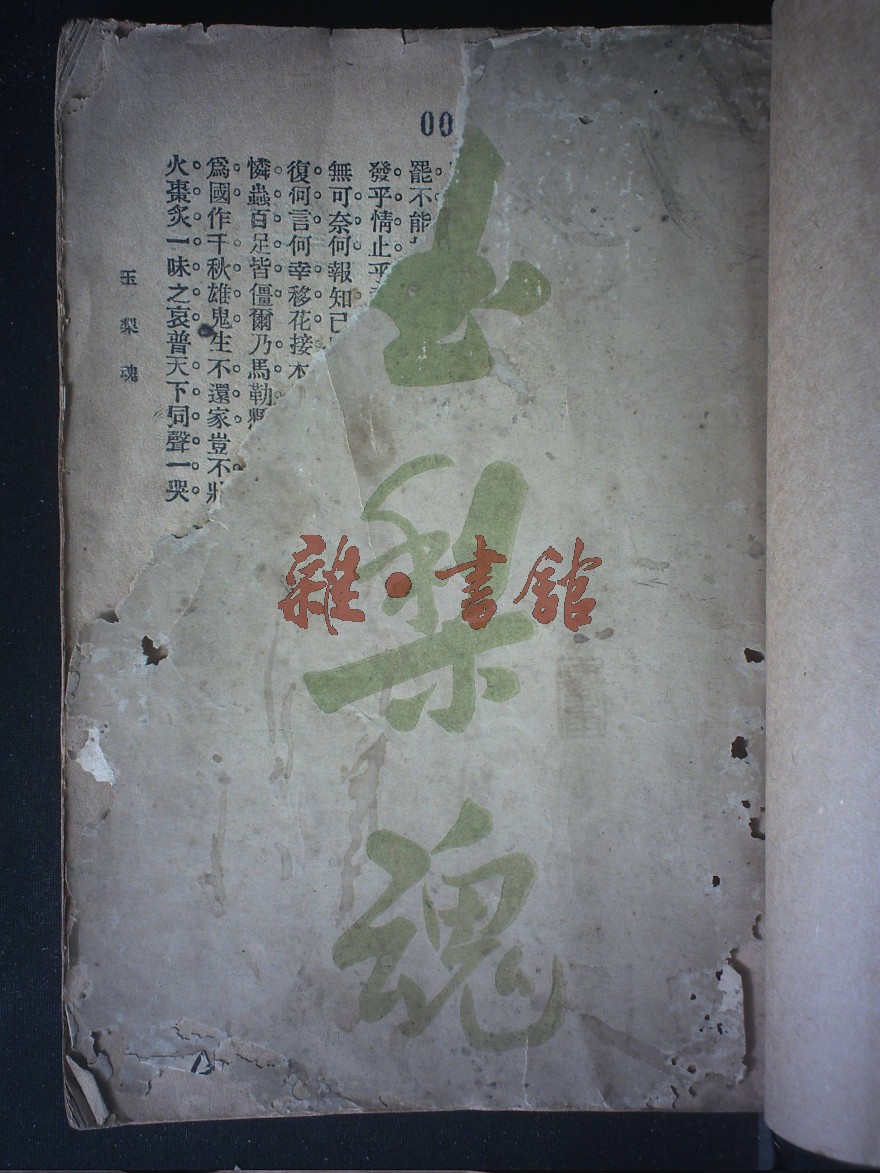 00
罷不能
發乎情止乎
無可奈何報知已
復何言何幸移花接木
憐蟲百足皆僵爾乃馬勒
爲國作千秋雄鬼生不還家豈不
火棗炙一味之哀普天下同聲一哭
玉梨魂
玉梨魂
雜·書館